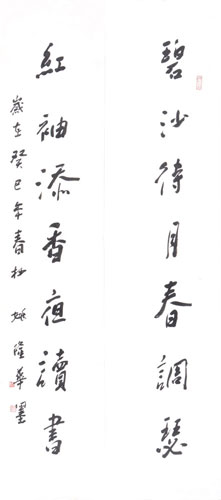 碧沙待月春調瑟
紅袖添香夜讀書
歲在癸巳年春 姚隆華書